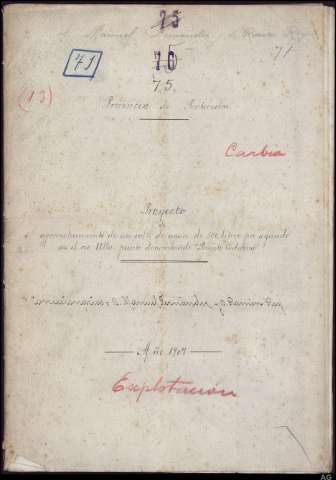 75
Manuel Fernandez y D. Ramón
71
71
76
75.
(13)
Provincia de Pontevedra
Carbia
Proyecto
de
aprovechamiento de un salto de agua de 500 litros por segundo
en el rio Ulla, punto denominado
Concesionarios: D. Manuel Fernández y D. Ramón Paz
Año 1907
Explotación
AG